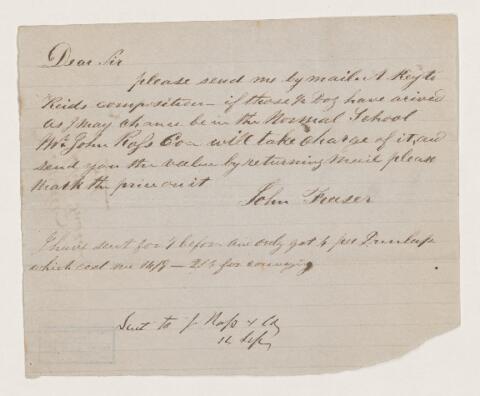 Dear Sir
please send me by mail 1 Key to
Reids composition – if those ½ Doz have arived
as I may chance be in the Normal School
Mr. John Ross Co. will take charge of it, and
send you the value by returning mail please
mark the price on it
John Fraser
I have sent for before and only got per Dunlap
which cost me – for conveying
Sent to J Ross & Co